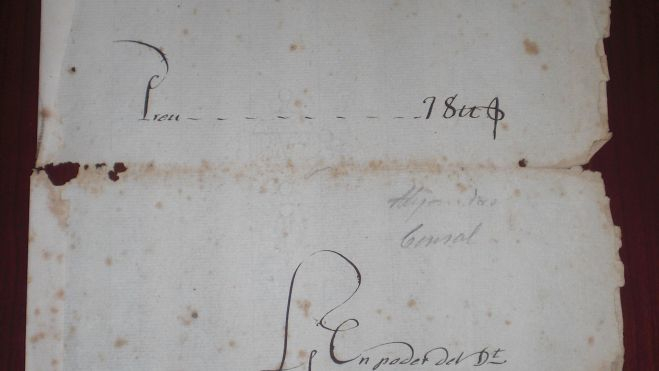 Preu - - - - - - - - - - 18 tt
Censal
En poder del Dt